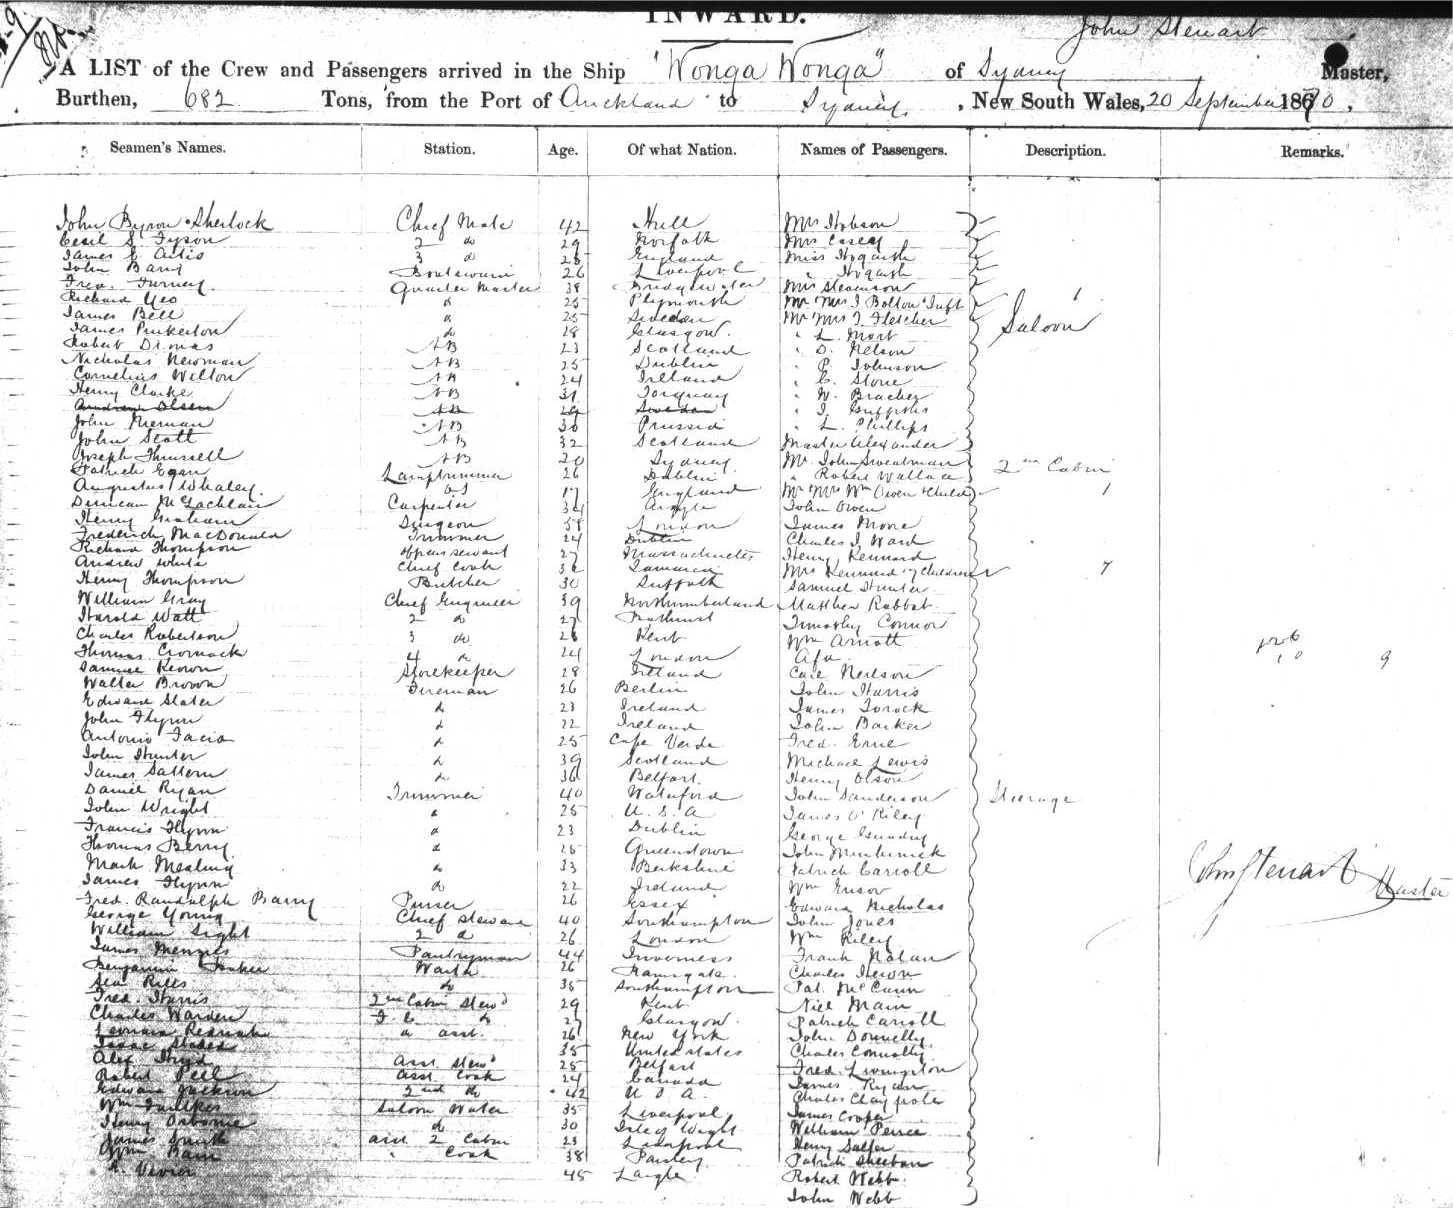 INWARD.
John Stewart
A LIST of the Crew and Passengers arrived in the Ship "Wonga Wonga" of Sydney Master,
Burthen, 682 Tons, from the Port of Auckland to Sydney, New South Wales, 20 September 1870.
Seamen's Names. Station. Age. Of what Nation. Names of Passengers. Description. Remarks.
John Byron Sherlock Chief Mate 42 Hull Mrs Hobson
Cecil S. Tyson 2 do 29 Norfolk Mrs Casey
James E. 3 do England Miss Hogarth
John Barry Boatswain 26 Liverpool " Hogarth
Fred. Furney Quarter Master 38 Bridgewater Mrs Stevenson
Richard Yeo do 25 Plymouth Mr Mrs J Bolton & Inft 1
James Bell do 25 Sweden Mr Mrs J. Fletcher Saloon
James Pinkerton do 28 Glasgow. " L. Mort
Robert AB 23 Scotland " D. Nelson
Nicholas Newman AB 25 Dublin " P Johnson
Cornelius Welton AB 24 Ireland " C. Stone
Henry Clarke AB 31 Torquay " W. Bracher
Olsen AB 29 Sweden " J. Griffiths
John Nieman AB 30 Prussia " L. Phillips
John Scott AB 32 Scotland Master Alexander
Joseph Thurssell AB 20 Sydney Mr. John Sweatman 2nd Cabin
Patrick Egan Lamptrimmer 26 Dublin " Robert Wallace
Augustus Whaley. OS 17 England Mr Mrs Wm Owen & Child 1
Duncan McLachlan Carpenter 34 Argyle John Owen
Henry Graham Surgeon London James Moore
Frederick MacDonald Trimmer 24 Dublin Charles J. Ward
Richard Thompson officers servant 27 Massachusetts Henry Kennard
Andrew White Chief Cook Jamaica Mrs Kennard & 7 Children 7
Henry Thompson Butcher 30 Suffolk Samuel Hunter
William Gray Chief Engineer 39 Northumberland Matthew Rabbat
Harold Watt 2 do 27 Bathurst Timothy Connor
Charles Robertson 3 do 28 Kent Wm Arnott
Thomas Cromack 4 do 24 London 9
Samuel Keown Storekeeper 28 Ireland Neilson
Walter Brown Fireman 26 Berlin John Harris
Edward Slater do 23 Ireland James
John Flynn do 22 Ireland John Barker
Antonio Facio do 25 Cape Verde Fred. Erne
John Hunter do 39 Scotland Michael Lewis
James Sattern do 36 Belfast. Henry Olson
Daniel Ryan Trimmer 40 Waterford John Sanderson Steerage
John Wright do 25 U.S.A James O'Riley
Francis Flynn do 23 Dublin George Gundry
Thomas Berry do 25 Queenstown John
Mark Mealing do 33 Berkshire Patrick Carroll John Stewart
James Flynn do 22 Ireland Wm Ensor Master
Fred. Randolph Barry Purser 26 Essex Edward Nicholas
George Young Chief Steward 40 Southampton John Jones
William Light 2 do 26 London Wm Riley
James Menzies Pantryman 44 Inverness Frank Nolan
Benjamin 26 Ramsgate. Charles Heron
Riles do 35 Southampton Pat. McCann
Fred. Harris 2nd Cabin Stewd 29 Kent Niel Main
Charles Warden F. C. do 27 Glasgow. Patrick Carroll
Leonard do asst. 26 New York John Donnelly
Isaac 35 United States Charles Connolly
Alex Asst Stewd 25 Belfast Fred. Livingston
Robert Peel Asst Cook 24 Canada James Ryan
Edward Jackson 2nd do 42 U S A. Charles Claypole
Wm Faulkes Saloon Waiter 35 Liverpool James Cooper
Henry Osborne do 30 Isle of Wight William Pearce
James Smith asst 2 Cabin 23 Liverpool Henry Salter
Wm Bain " Cook 38 Paisley Patrick Sheehan
45 Robert Webb
John Webb